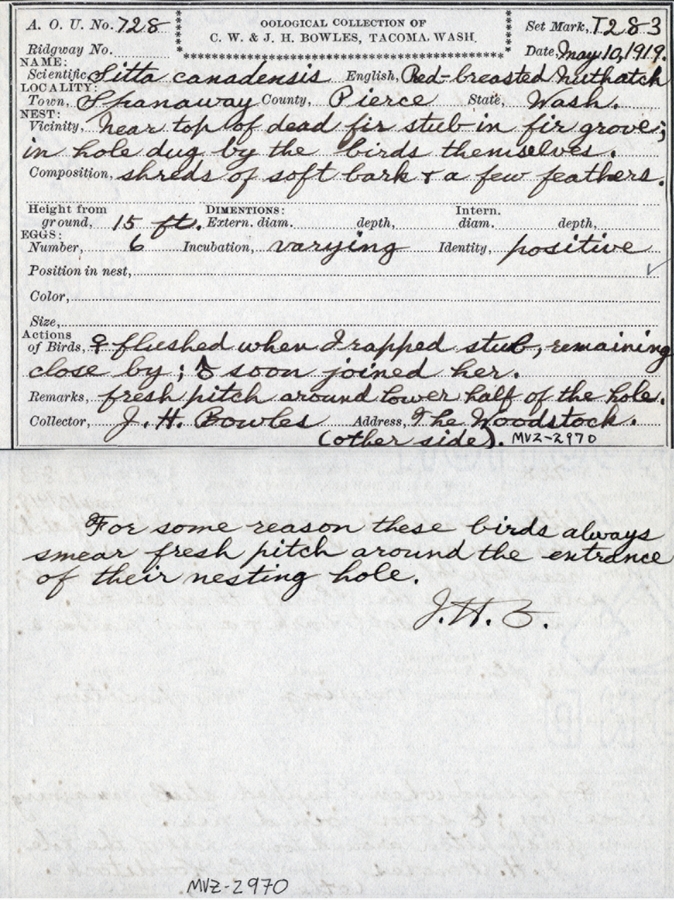 A. O. U. No. 728
OOLOGICAL COLLECTION OF
C. W. & J. H. BOWLES, TACOMA, WASH.
Set Mark, T 28-3
Ridgway No.
Date, May 10, 1919.
NAME:
Scientific, Sitta canadensis English, Red-breasted Nuthatch
LOCALITY:
Town, Spanaway County, Pierce State, Wash.
NEST:
Vicinity, Near top of dead fir stub in fir grove;
in hole dug by the birds themselves.
Composition, shreds of soft bark & a few feathers.
Height from ground, 15 ft. DIMENTIONS: Extern. diam. depth, Intern. diam. depth,
EGGS:
Number, 6 Incubation, varying Identity, positive
Position in nest,
Color,
Size,
Actions of Birds, ♀ flushed when I rapped stub, remaining
close by; ♂ soon joined her.
Remarks, fresh pitch around lower half of the hole.
Collector, J. H. Bowles Address, The Woodstock.
(other side). MVZ-2970
For some reason these birds always
smear fresh pitch around the entrance
of their nesting hole.
J. H. B.
MVZ-2970